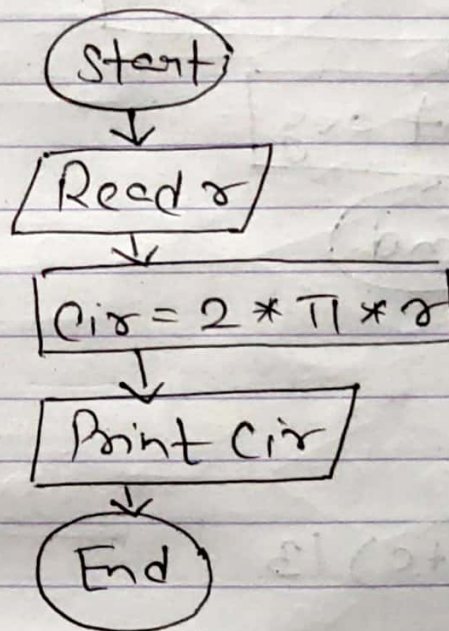 Start
Read r
Cir = 2 * π * r
Print Cir
End